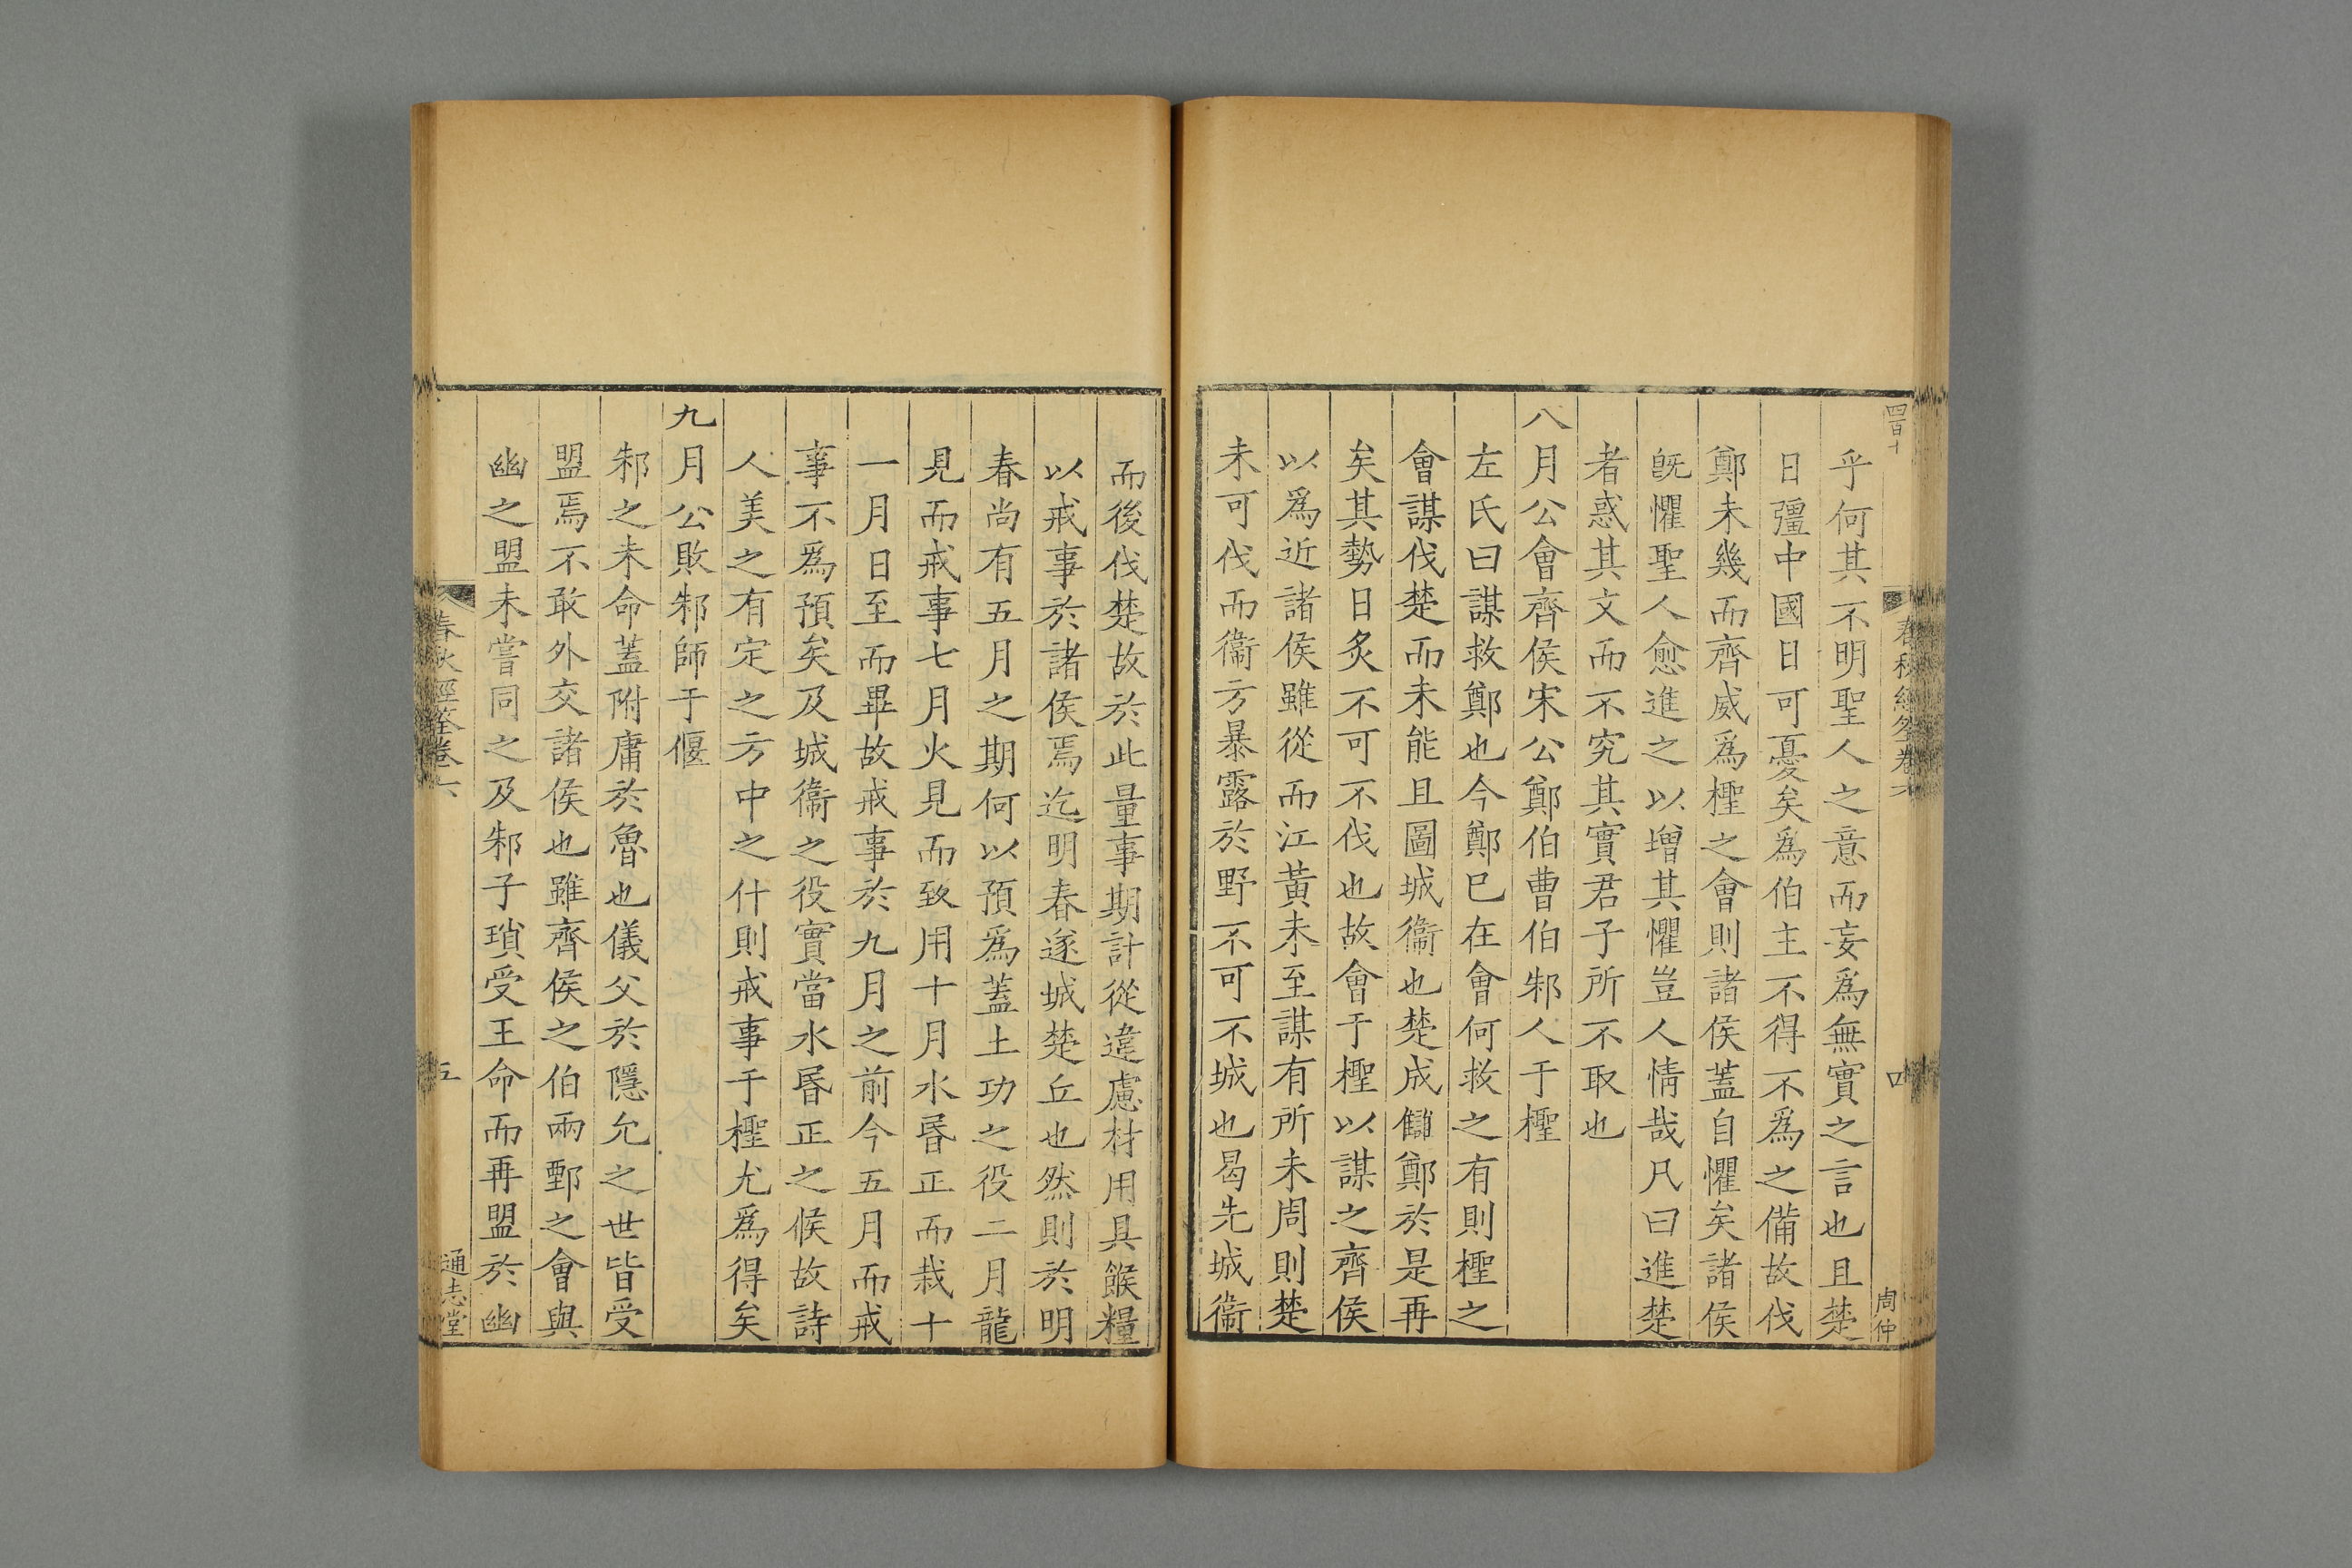 四百十
春秋經筌卷六
四
周仲
乎何其不明聖人之意而妄爲無實之言也且楚
日彊中國日可憂矣爲伯主不得不爲之備故伐
鄭未幾而齊威爲檉之會則諸侯蓋自懼矣諸侯
旣懼聖人愈進之以增其懼豈人情哉凡曰進楚
者惑其文而不究其實君子所不取也
八月公會齊侯宋公鄭伯曹伯邾人于檉
左氏曰謀救鄭也今鄭巳在會何救之有則檉之
會謀伐楚而未能且圖城衞也楚成讎鄭於是再
矣其勢日炙不可不伐也故會于檉以謀之齊侯
以爲近諸侯雖從而江黃未至謀有所未周則楚
未可伐而衞方暴露於野不可不城也曷先城衞
而後伐楚故於此量事期計從違慮材用具餱糧
以戒事於諸侯焉迄明春遂城楚丘也然則於明
春尚有五月之期何以預爲蓋土功之役二月龍
見而戒事七月火見而致用十月水昏正而栽十
一月日至而畢故戒事於九月之前今五月而戒
事不爲預矣及城衞之役實當水昏正之候故詩
人美之有定之方中之什則戒事于檉尤爲得矣
九月公敗邾師于偃
邾之未命蓋附庸於魯也儀父於隱允之世皆受
盟焉不敢外交諸侯也雖齊侯之伯兩鄄之會與
幽之盟未嘗同之及邾子瑣受王命而再盟於幽
春秋經筌卷六
五
通志堂